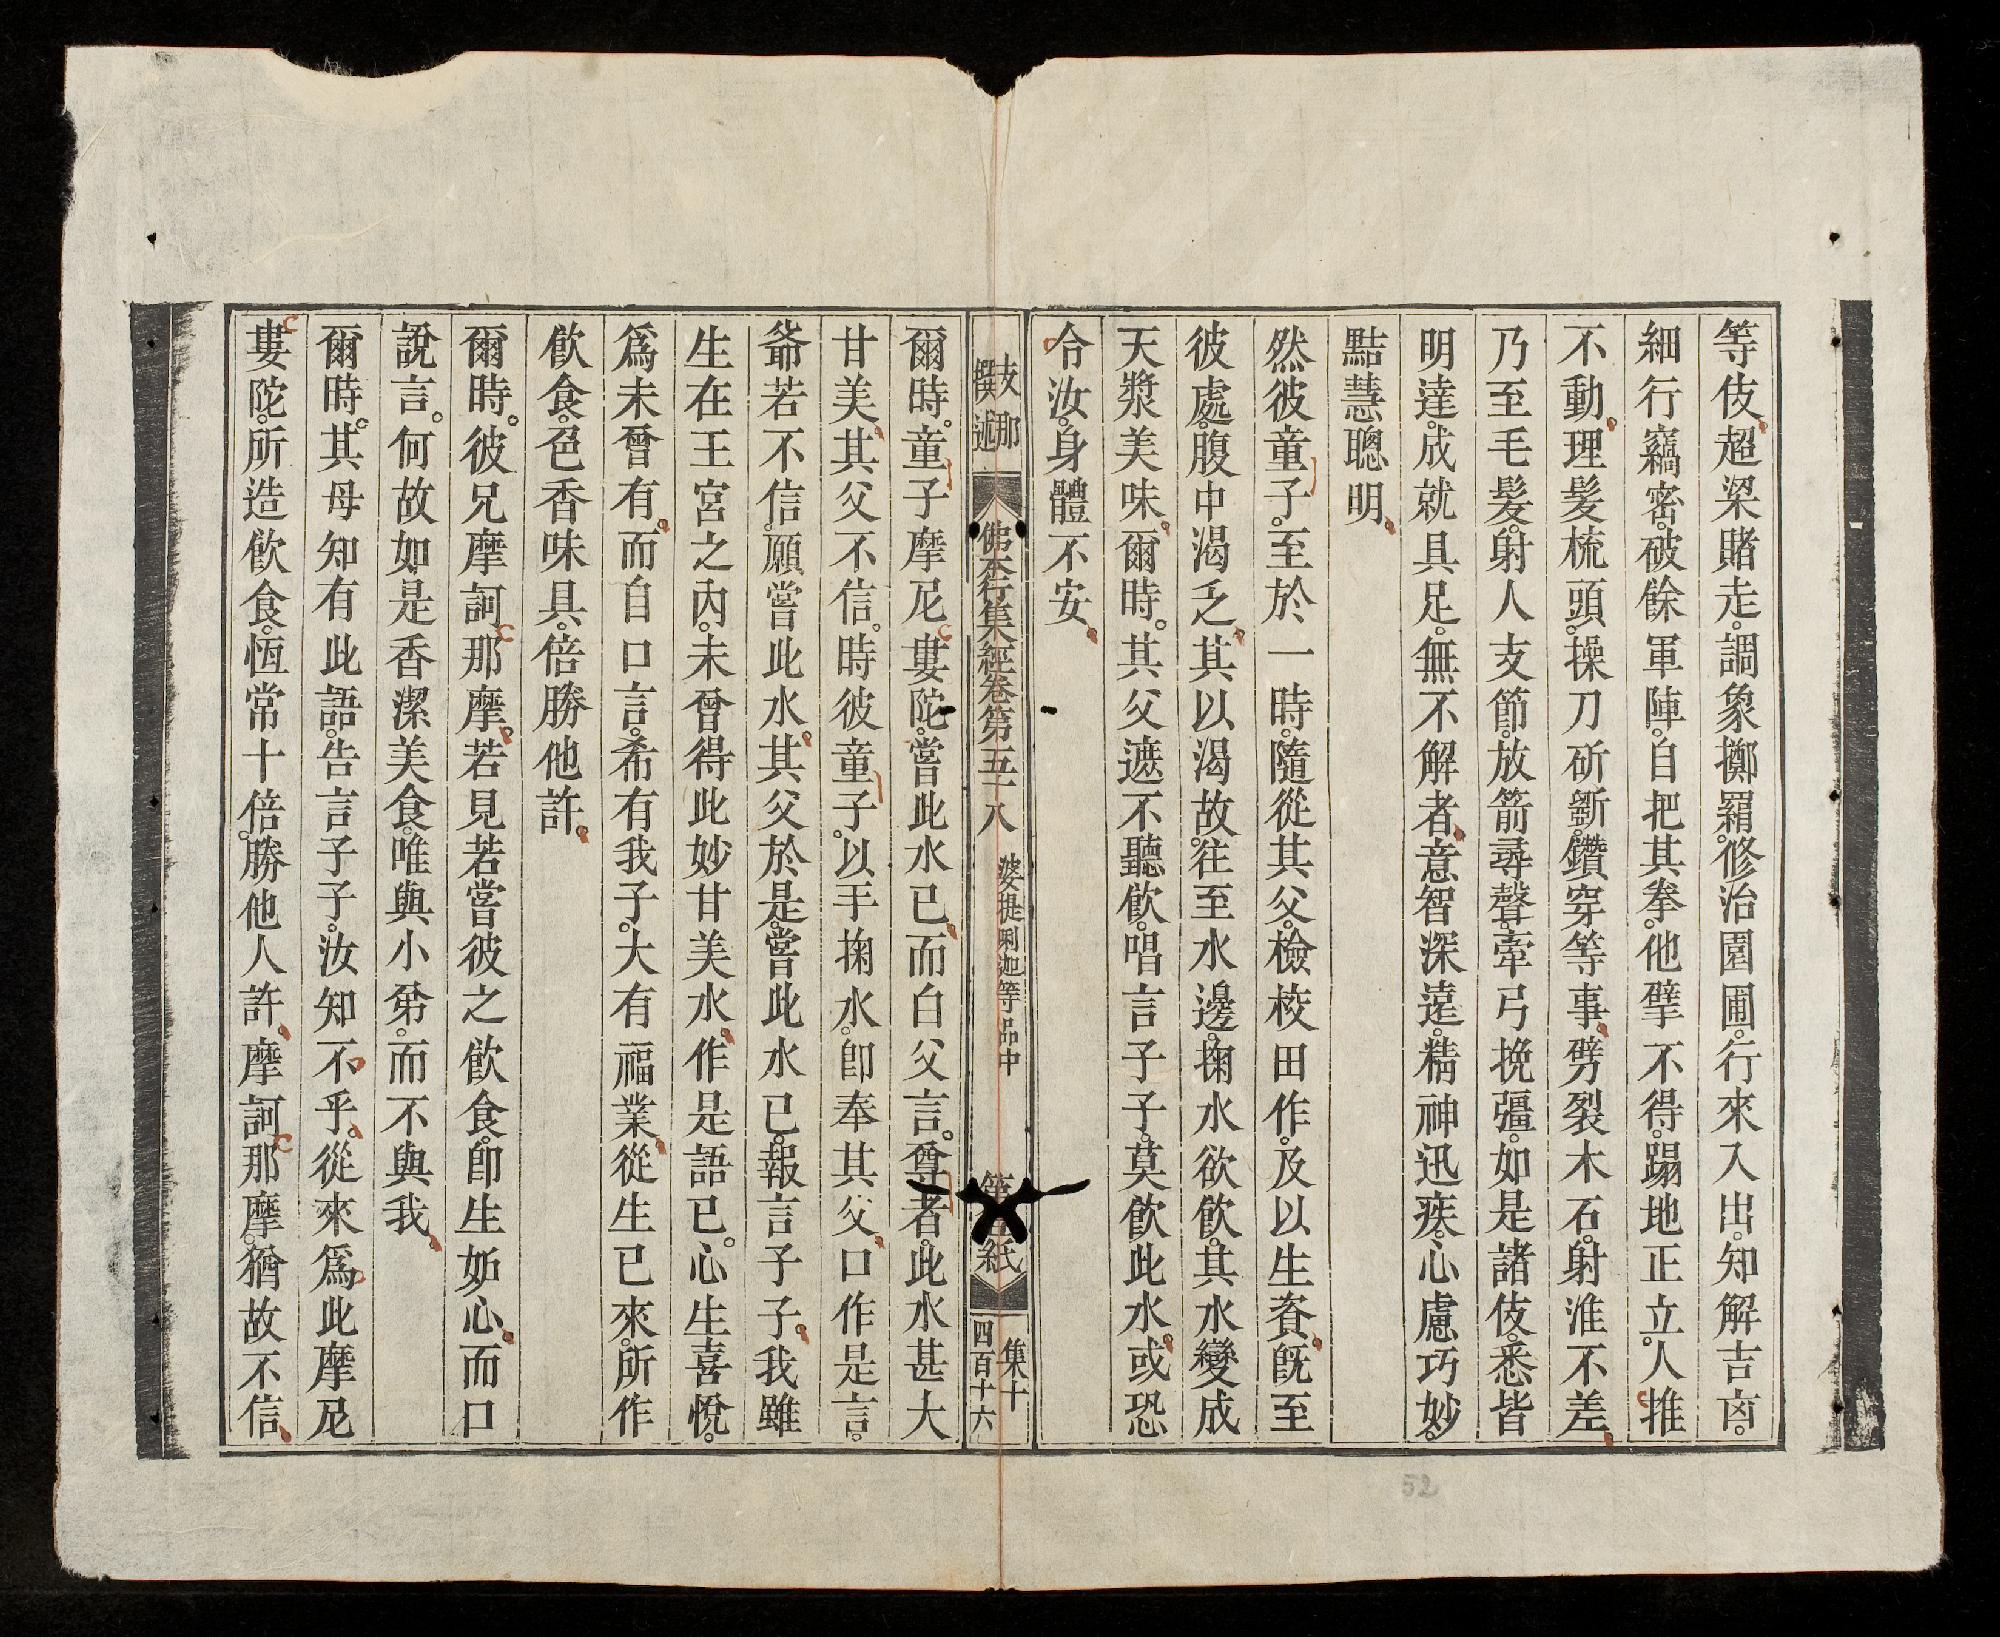 等伎。超梁賭走。調象擲羂。修治園圃。行來入出。知解吉𠧧。
細行竊密。破餘軍陣。自把其拳。他擘不得。蹋地正立。人推
不動。理髮梳頭。操刀斫斵。鑽穿等事。劈裂木石。射准不差。
乃至毛髮。射人支節。放箭尋聲。牽弓挽彊。如是諸伎。悉皆
明達。成就具足。無不解者。意智深遠。精神迅疾。心慮巧妙。
點慧聰明。
然彼童子。至於一時。隨從其父。檢校田作。及以生資。旣至
彼處。腹中渴乏。其以渴故。往至水邊。掬水欲飮。其水變成
天漿美味。爾時。其父遮不聽飮。唱言子子。莫飮此水。或恐
令汝。身體不安。
支那
撰述
佛本行集經卷第五十八
婆提唎迦等品中
第 紙
集十
四百十六
爾時。童子摩尼婁陀。嘗此水已。而白父言。尊者。此水甚大
甘美。其父不信。時彼童子。以手掬水。卽奉其父。口作是言。
爺若不信。願嘗此水。其父於是。嘗此水已。報言子子。我雖
生在王宮之內。未曾得此妙甘美水。作是語已。心生喜悅。
爲未曾有。而自口言。希有我子。大有福業。從生已來。所作
飮食。色香味具。倍勝他許。
爾時。彼兄摩訶那摩。若見若嘗彼之飮食。卽生妬心。而口
說言。何故如是香潔美食。唯與小弟。而不與我。
爾時。其母知有此語。告言子子。汝知不乎。從來爲此摩尼
婁陀。所造飮食。恆常十倍。勝他人許。摩訶那摩。猶故不信。
52